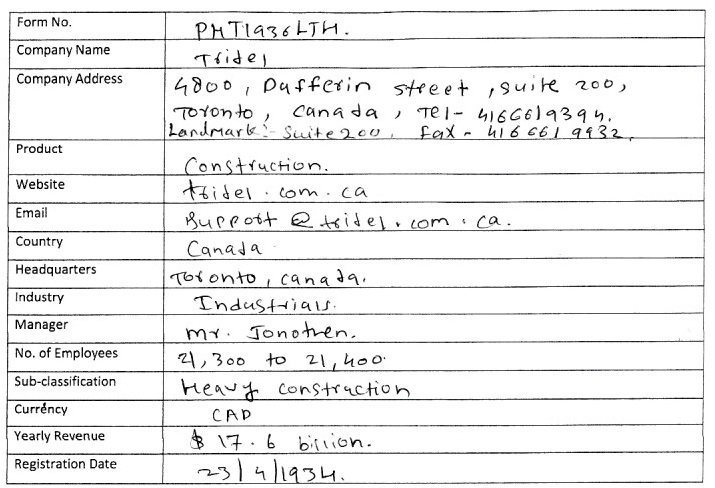 Form No. PHT1936LTH.
Company Name Tridel
Company Address 4800, Dufferin street, suite 200,
Toronto, Canada, Tel- 4166619394.
Landmark:- Suite 200, Fax - 4166619932.
Product Construction.
Website tridel.com.ca
Email Support@tridel.com.ca.
Country Canada
Headquarters Toronto, Canada.
Industry Industrials.
Manager Mr. Jonothen.
No. of Employees 21,300 to 21,400.
Sub-classification Heavy construction
Currency CAD
Yearly Revenue $ 17.6 billion.
Registration Date 23/4/1934.